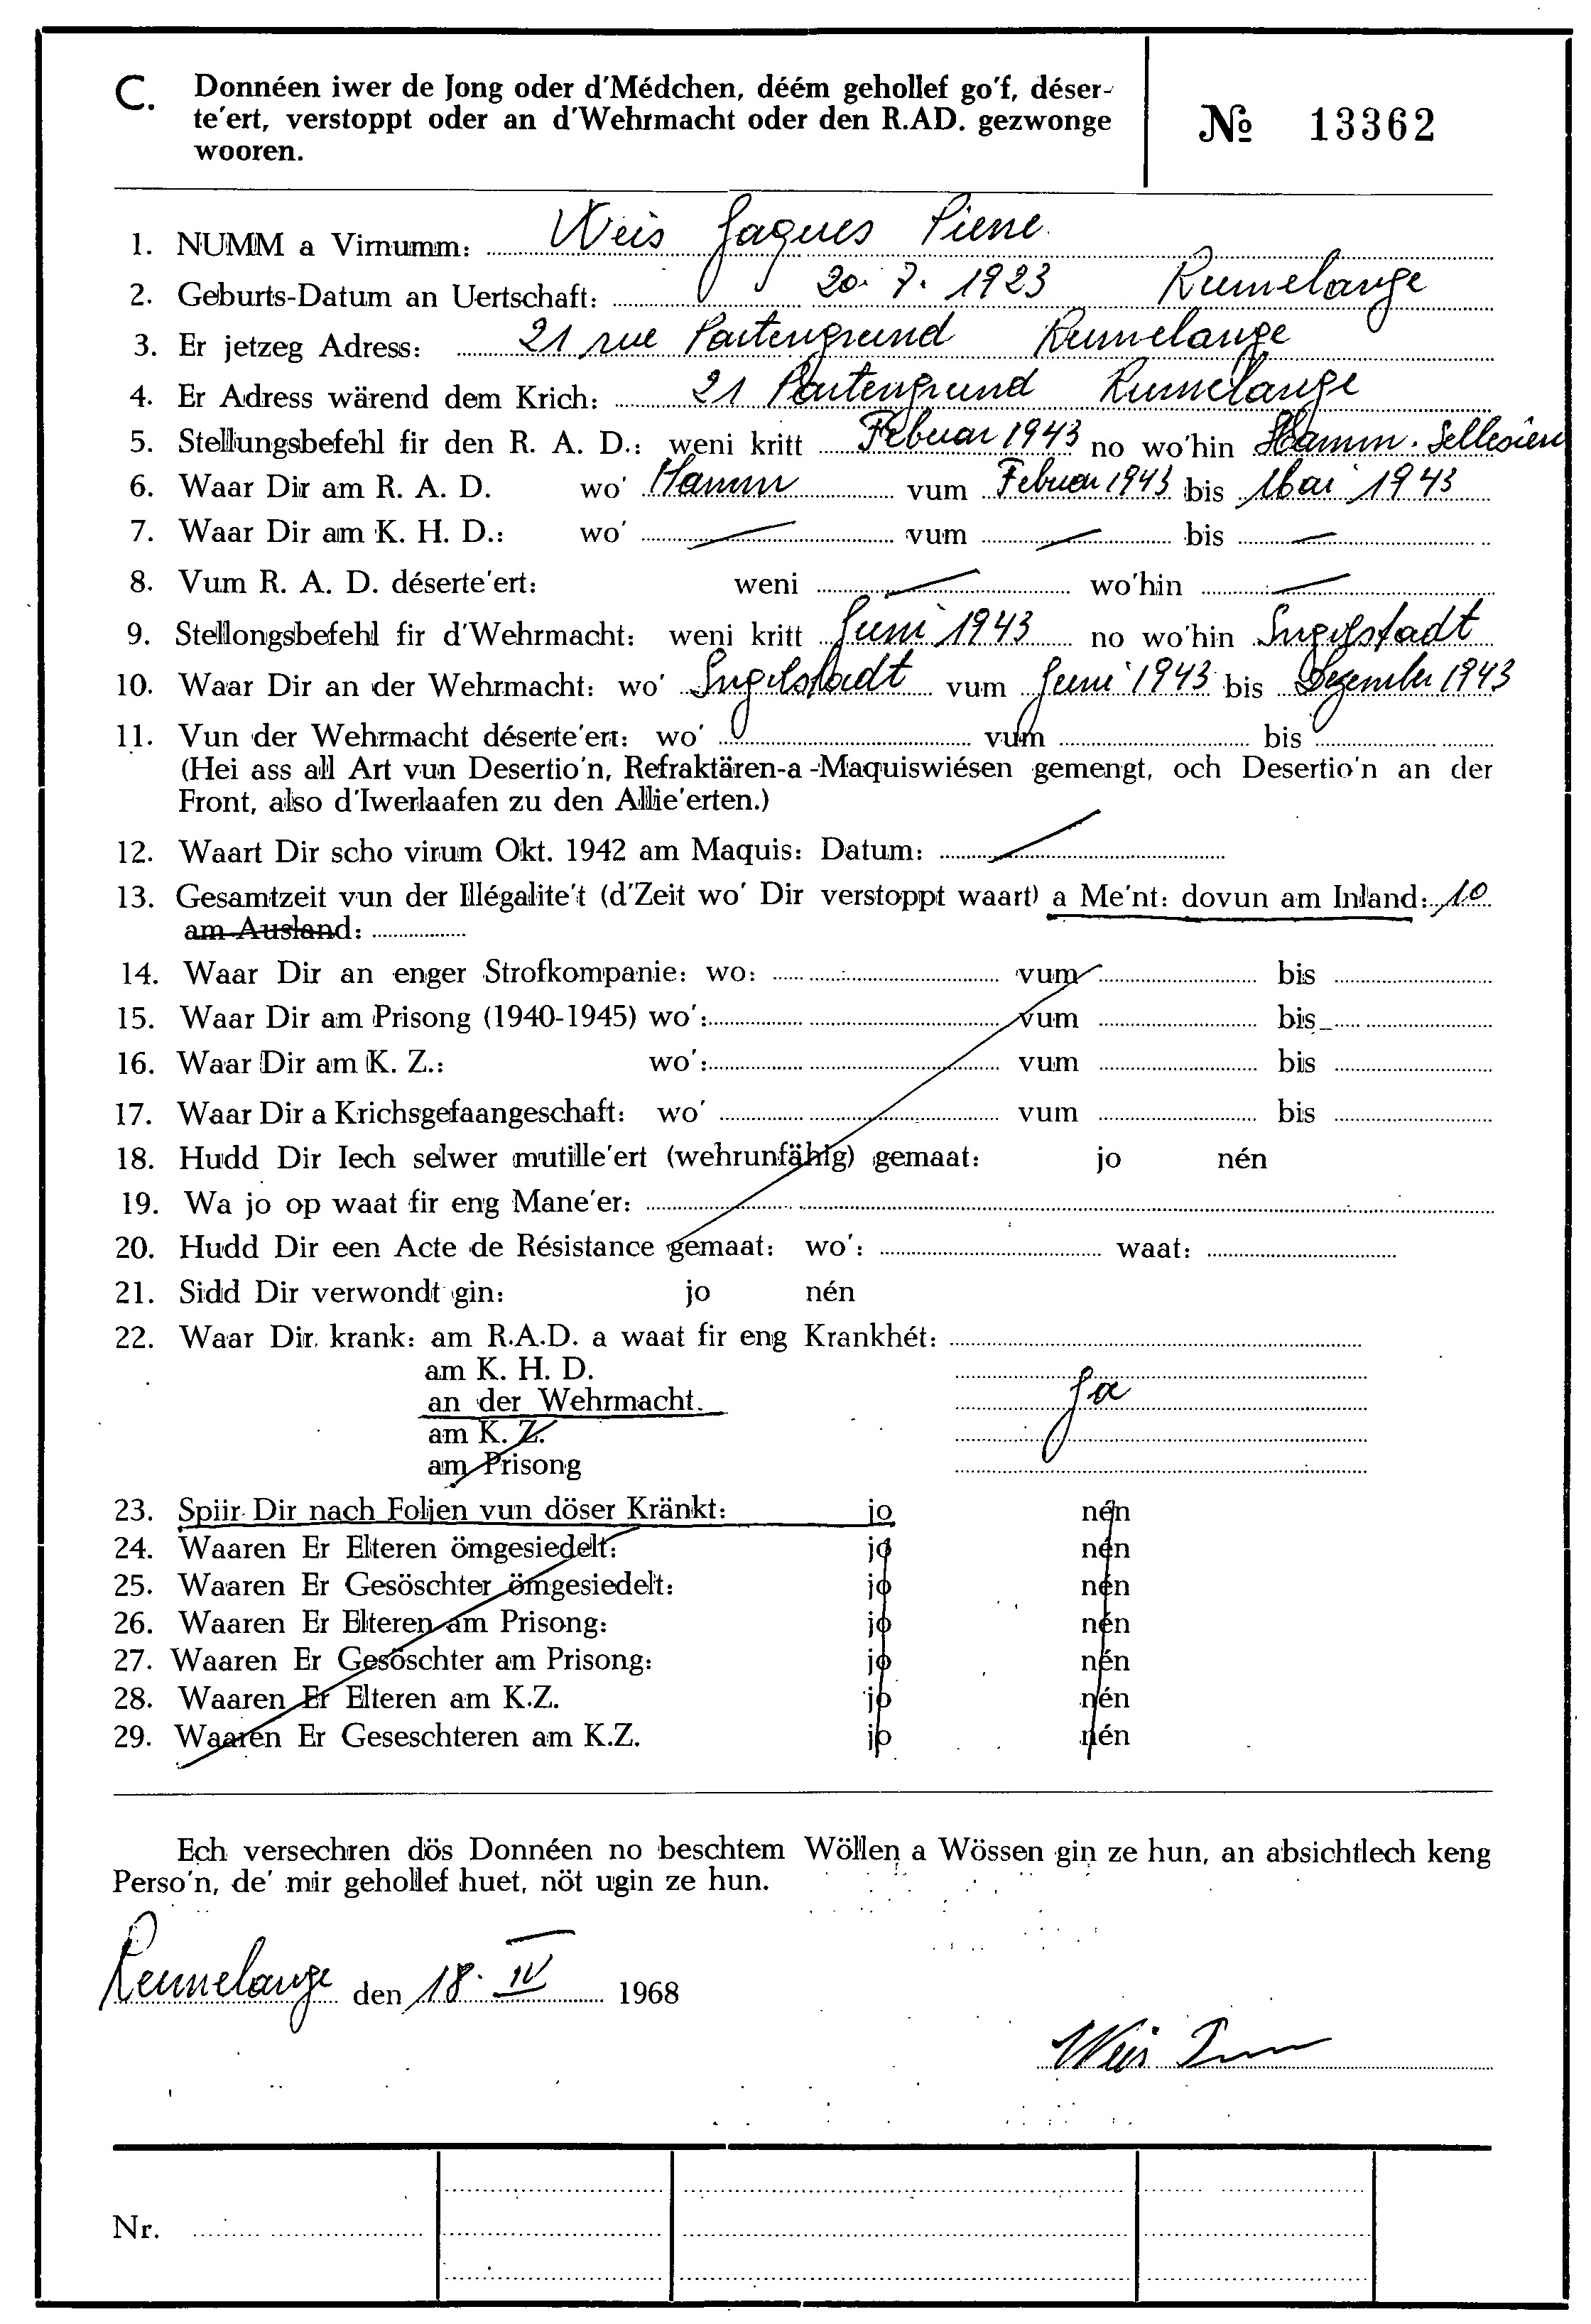 C. Donnéen iwer de Jong oder d'Médchen, déém gehollef go'f, déser-
te'ert, verstoppt oder an d'Wehrmacht oder den R.AD. gezwonge
wooren.
№ 13362
1. NUMM a Virnumm: Weis Jaques Pierre
2. Geburts-Datum an Uertschaft: 20. 7. 1923 Rumelange
3. Er jetzeg Adress: 21 rue Partengrund Rumelange
4. Er Adress wärend dem Krich: 21 Partengrund Rumelange
5. Stellungsbefehl fir den R. A. D.: weni kritt Februar 1943 no wo'hin Hamm. Sellesien
6. Waar Dir am R. A. D. wo' Hamm vum Februar 1943 bis Mai 1943
7. Waar Dir am K. H. D.: wo' — vum — bis —
8. Vum R. A. D. déserte'ert: weni — wo'hin —
9. Stellongsbefehl fir d'Wehrmacht: weni kritt Juni 1943 no wo'hin Ingolstadt
10. Waar Dir an der Wehrmacht: wo' Ingolstadt vum Juni 1943 bis Dezember 1943
11. Vun der Wehrmacht déserte'ert: wo' vum bis
(Hei ass all Art vun Desertio'n, Refraktären-a-Maquiswiésen gemengt, och Desertio'n an der
Front, also d'Iwerlaafen zu den Allie'erten.)
12. Waart Dir scho virum Okt. 1942 am Maquis: Datum: —
13. Gesamtzeit vun der Illégalite't (d'Zeit wo' Dir verstoppt waart) a Me'nt: dovun am Inland: 10
am Ausland:
14. Waar Dir an enger Strofkompanie: wo: vum bis
15. Waar Dir am Prisong (1940-1945) wo': vum bis
16. Waar Dir am K. Z.: wo': vum bis
17. Waar Dir a Krichsgefaangeschaft: wo' vum bis
18. Hudd Dir Iech selwer mutille'ert (wehrunfähig) gemaat: jo nén
19. Wa jo op waat fir eng Mane'er:
20. Hudd Dir een Acte de Résistance gemaat: wo': waat:
21. Sidd Dir verwondt gin: jo nén
22. Waar Dir krank: am R.A.D. a waat fir eng Krankhét:
am K. H. D.
an der Wehrmacht. Ja
am K. Z.
am Prisong
23. Spiir Dir nach Folien vun döser Kränkt: jo nén
24. Waaren Er Elteren ömgesiedelt: jo nén
25. Waaren Er Gesöschter ömgesiedelt: jo nén
26. Waaren Er Elteren am Prisong: jo nén
27. Waaren Er Gesöschter am Prisong: jo nén
28. Waaren Er Elteren am K.Z. jo nén
29. Waaren Er Geseschteren am K.Z. jo nén
Ech versechren dös Donnéen no beschtem Wöllen a Wössen gin ze hun, an absichtlech keng
Perso'n, de' mir gehollef huet, nöt ugin ze hun.
Rumelange den 18. IV 1968
Weis
Nr.